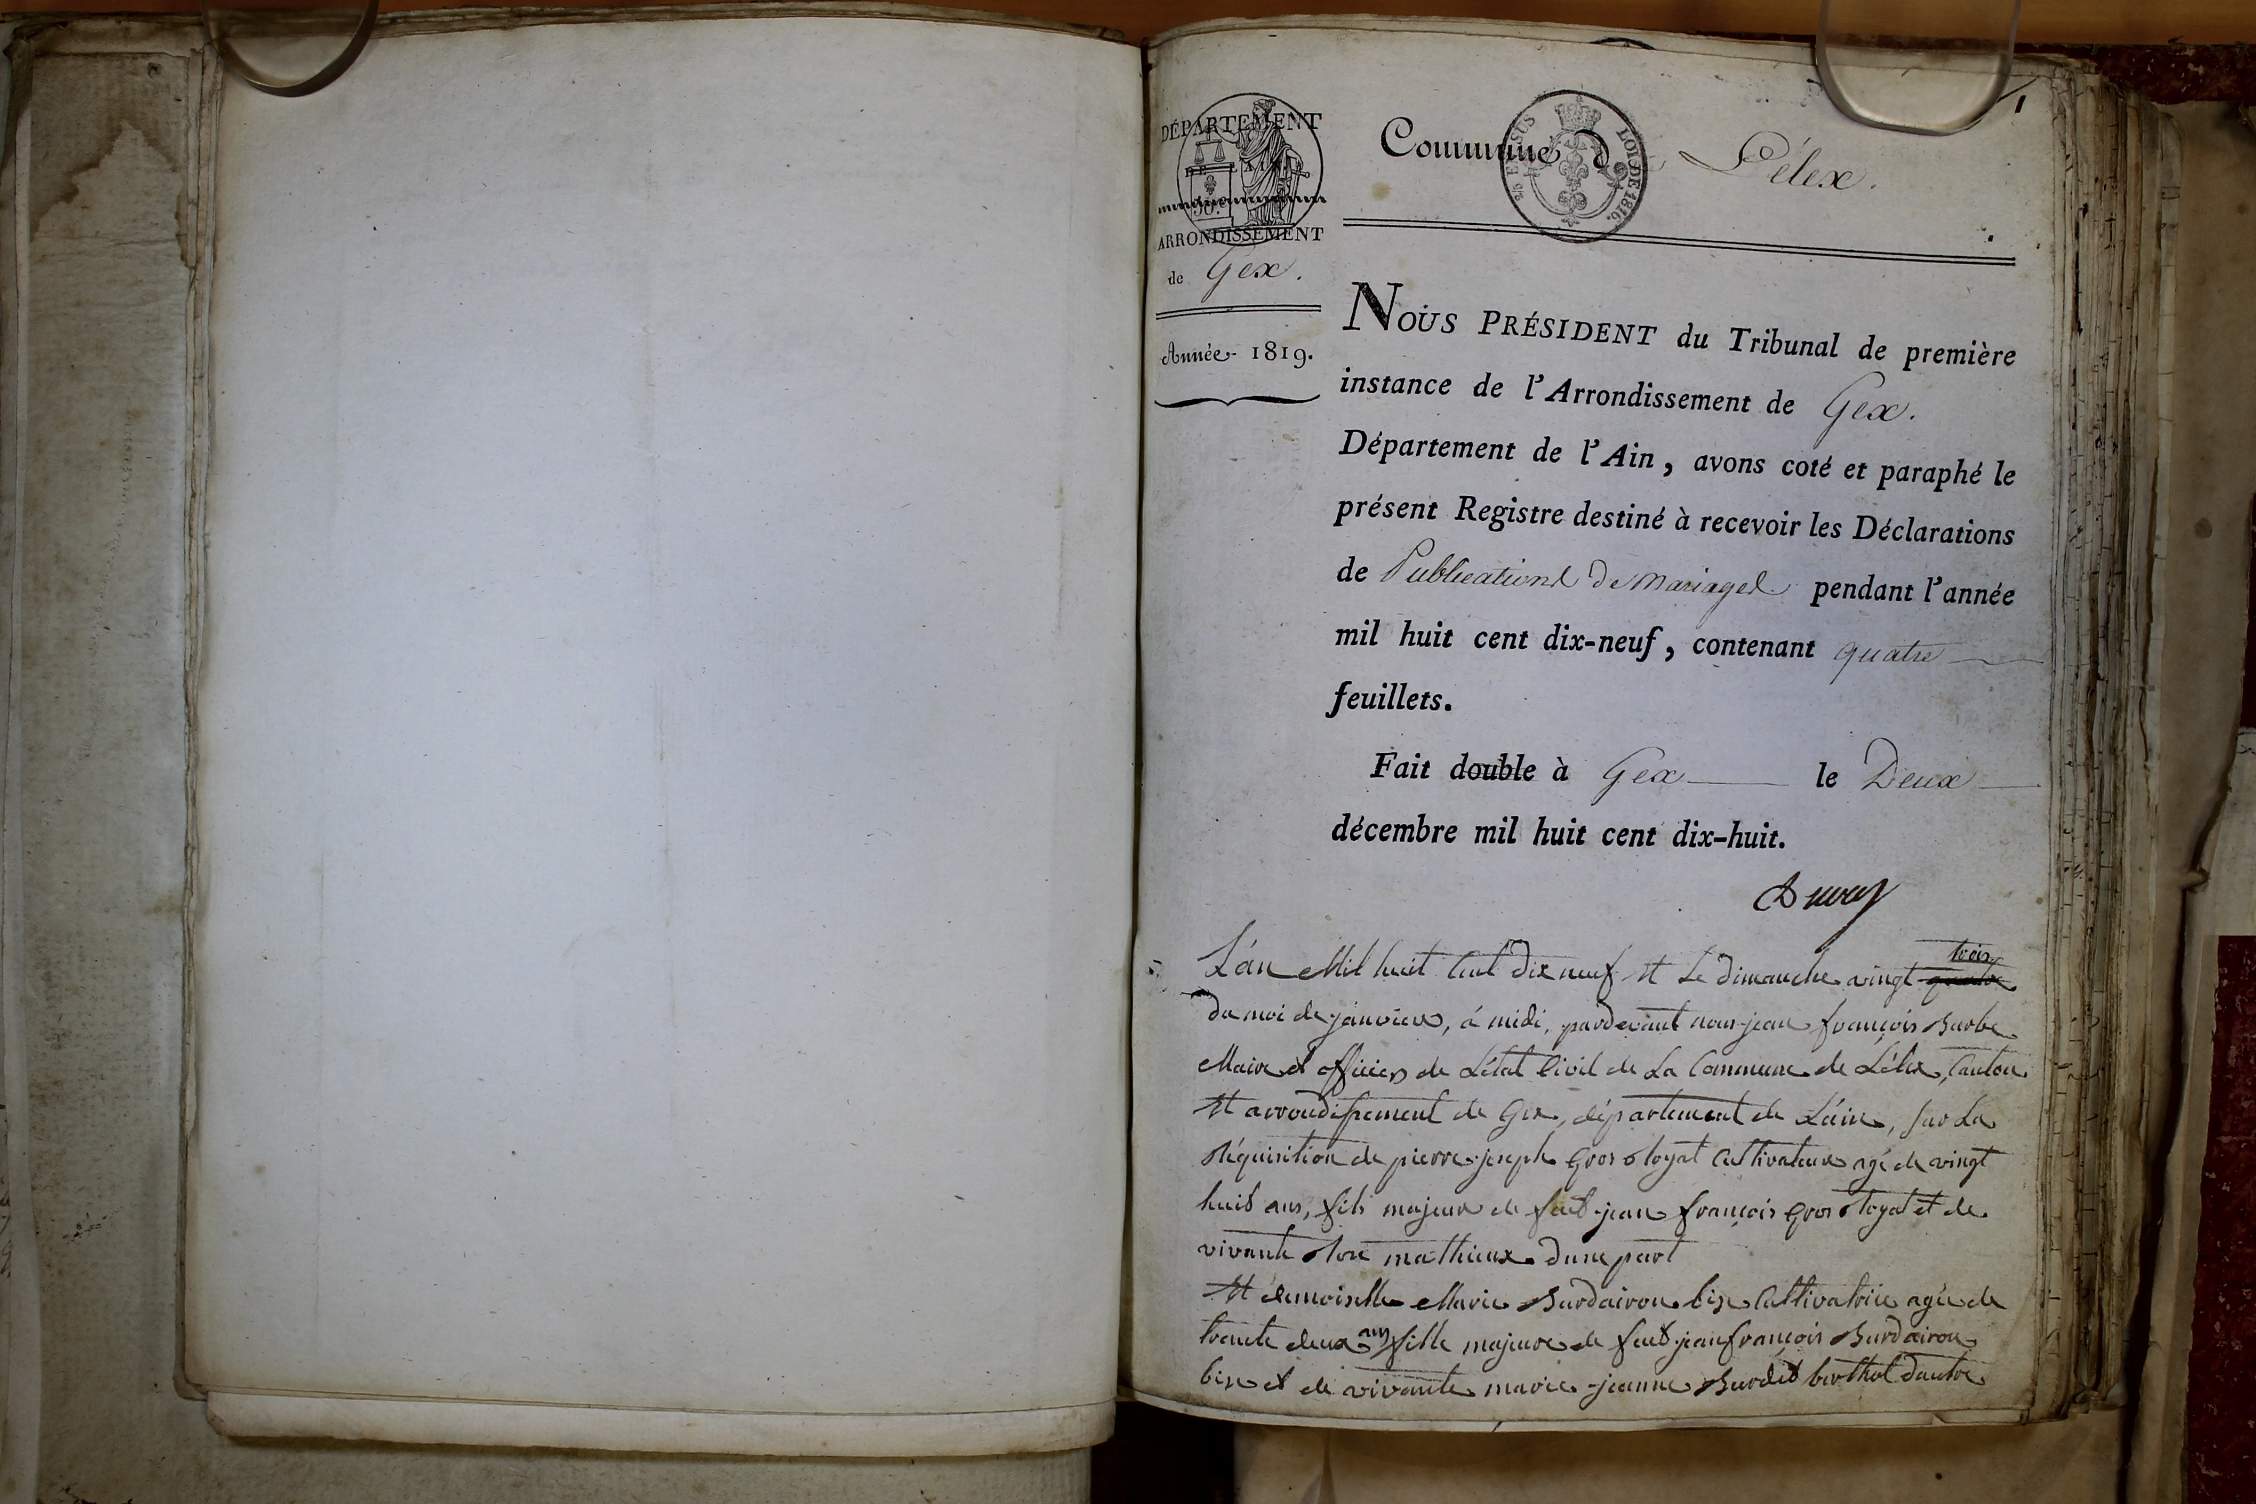 DÉPARTEMENT
DE L'AIN
ARRONDISSEMENT
de Gex.
Année 1819.
1
Commune de Lélex.
EN SUS
LOI DE 1816.
NOUS PRÉSIDENT du Tribunal de première
instance de l'Arrondissement de Gex.
Département de l'Ain, avons coté et paraphé le
présent Registre destiné à recevoir les Déclarations
de Publications de mariages pendant l'année
mil huit cent dix-neuf, contenant quatre
feuillets.
Fait double à Gex le Deux
décembre mil huit cent dix-huit.
L'an Mil huit Cent dix neuf et Le dimanche vingt quatre trois
du moi de janvier, á midi, pardevant nous jean françois Barbe
Maire et officier de L'état Civil de La Commune de Lélex, Canton
et arrondissement de Gex, département de L'ain, sur La
Réquisition de pierre joseph Gros toyat Cultivateur agé de vingt
huit ans, fils majeur de feut jean françois Gros toyat et de
vivante mathieux d'une part
et demoiselle Marie Burdairon bise Cultivatrice agée de
trente deux ans fille majeure de feut jean françois Burdairon
bise et de vivante marie jeanne Burdet berthol d'autre